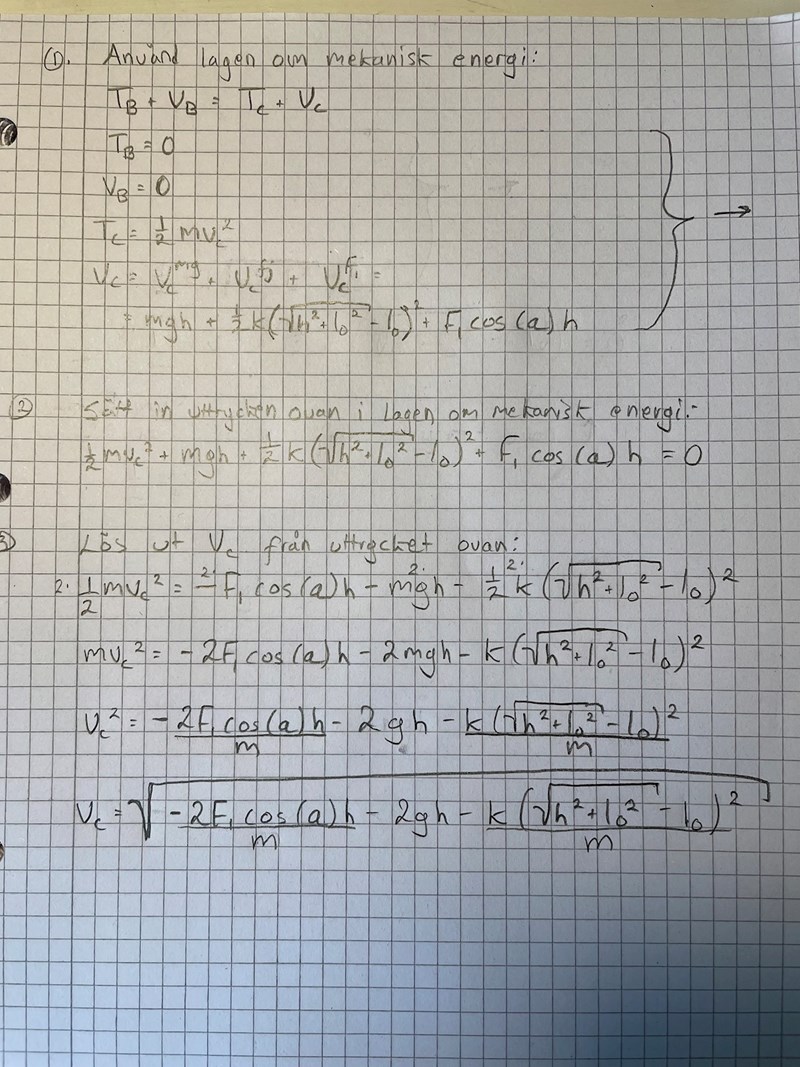 ①. Använd lagen om mekanisk energi:
T_B + V_B = T_C + V_C
T_B = 0
V_B = 0
T_C = 1/2 mv_c^2 →
V_C = V_c^mg + V_c^fj + V_c^F₁ =
= mgh + 1/2 k(√(h^2+l_0^2) - l_0)^2 + F₁ cos(a) h
② Sätt in uttrycken ovan i lagen om mekanisk energi:-
1/2 mv_c^2 + mgh + 1/2 k(√(h^2+l_0^2) - l_0)^2 + F₁ cos(a) h = 0
③ Lös ut V_c från uttrycket ovan:
2· 1/2 mv_c^2 = 2· -F₁ cos(a)h - 2· mgh - 2· 1/2 k(√(h^2+l_0^2) - l_0)^2
mv_c^2 = -2F₁ cos(a)h - 2mgh - k(√(h^2+l_0^2) - l_0)^2
v_c^2 = -2F₁ cos(a)h/m - 2gh - k(√(h^2+l_0^2) - l_0)^2/m
v_c = √(-2F₁ cos(a)h/m - 2gh - k(√(h^2+l_0^2) - l_0)^2/m)